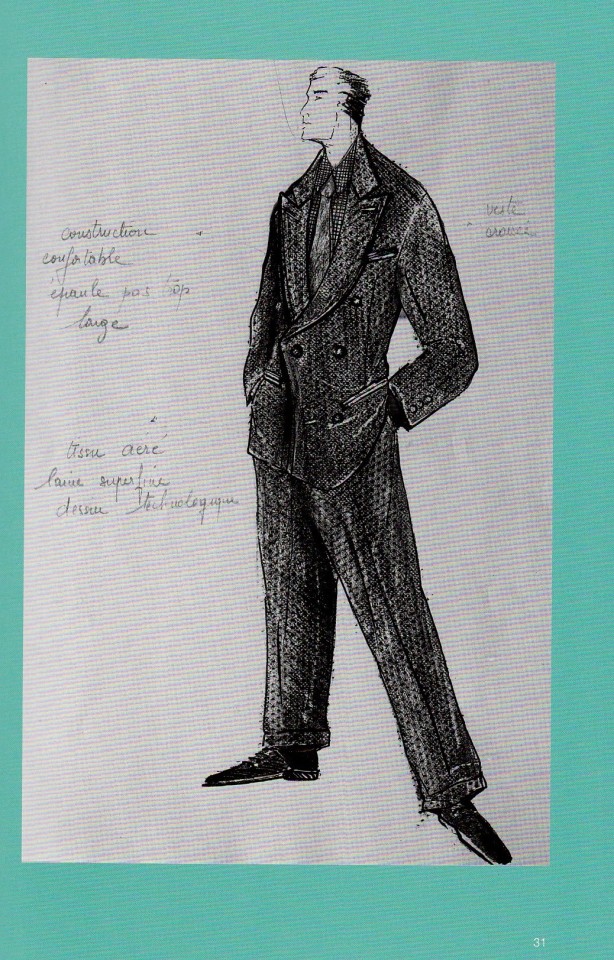 construction
confortable
épaule pas trop
large
veste
croisée
tissu aéré
laine superfine
dessin technologique
31